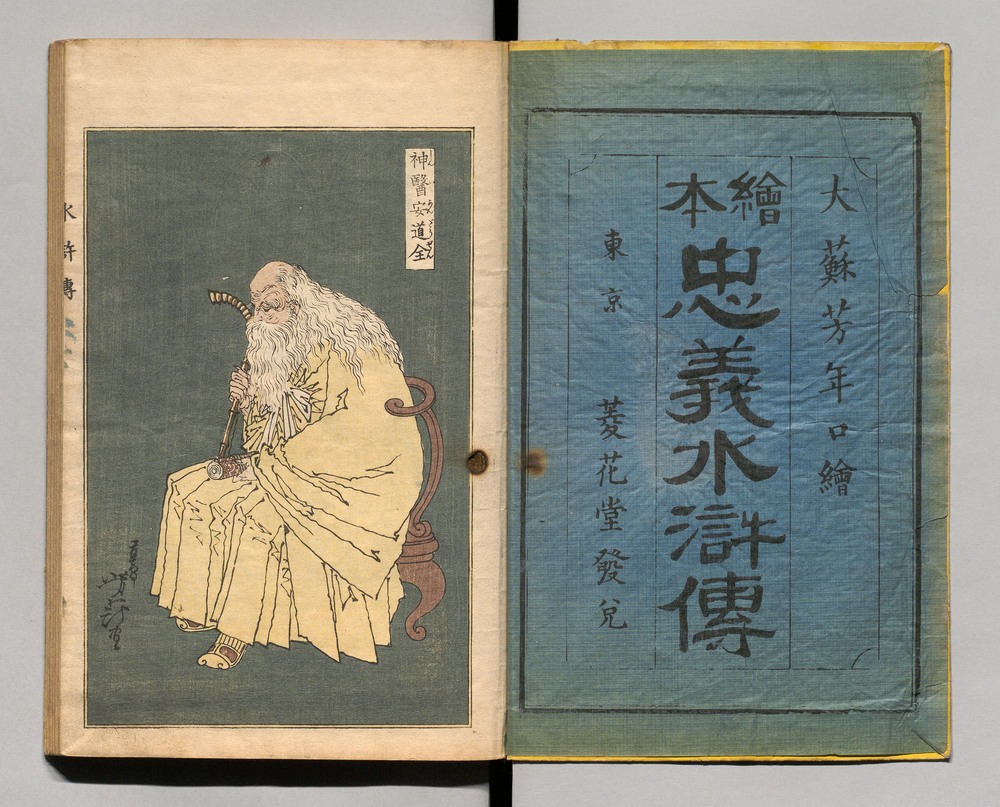 大蘇芳年口繪
繪本
忠義水滸傳
東京 菱花堂發兌
神醫安道全
水滸傳